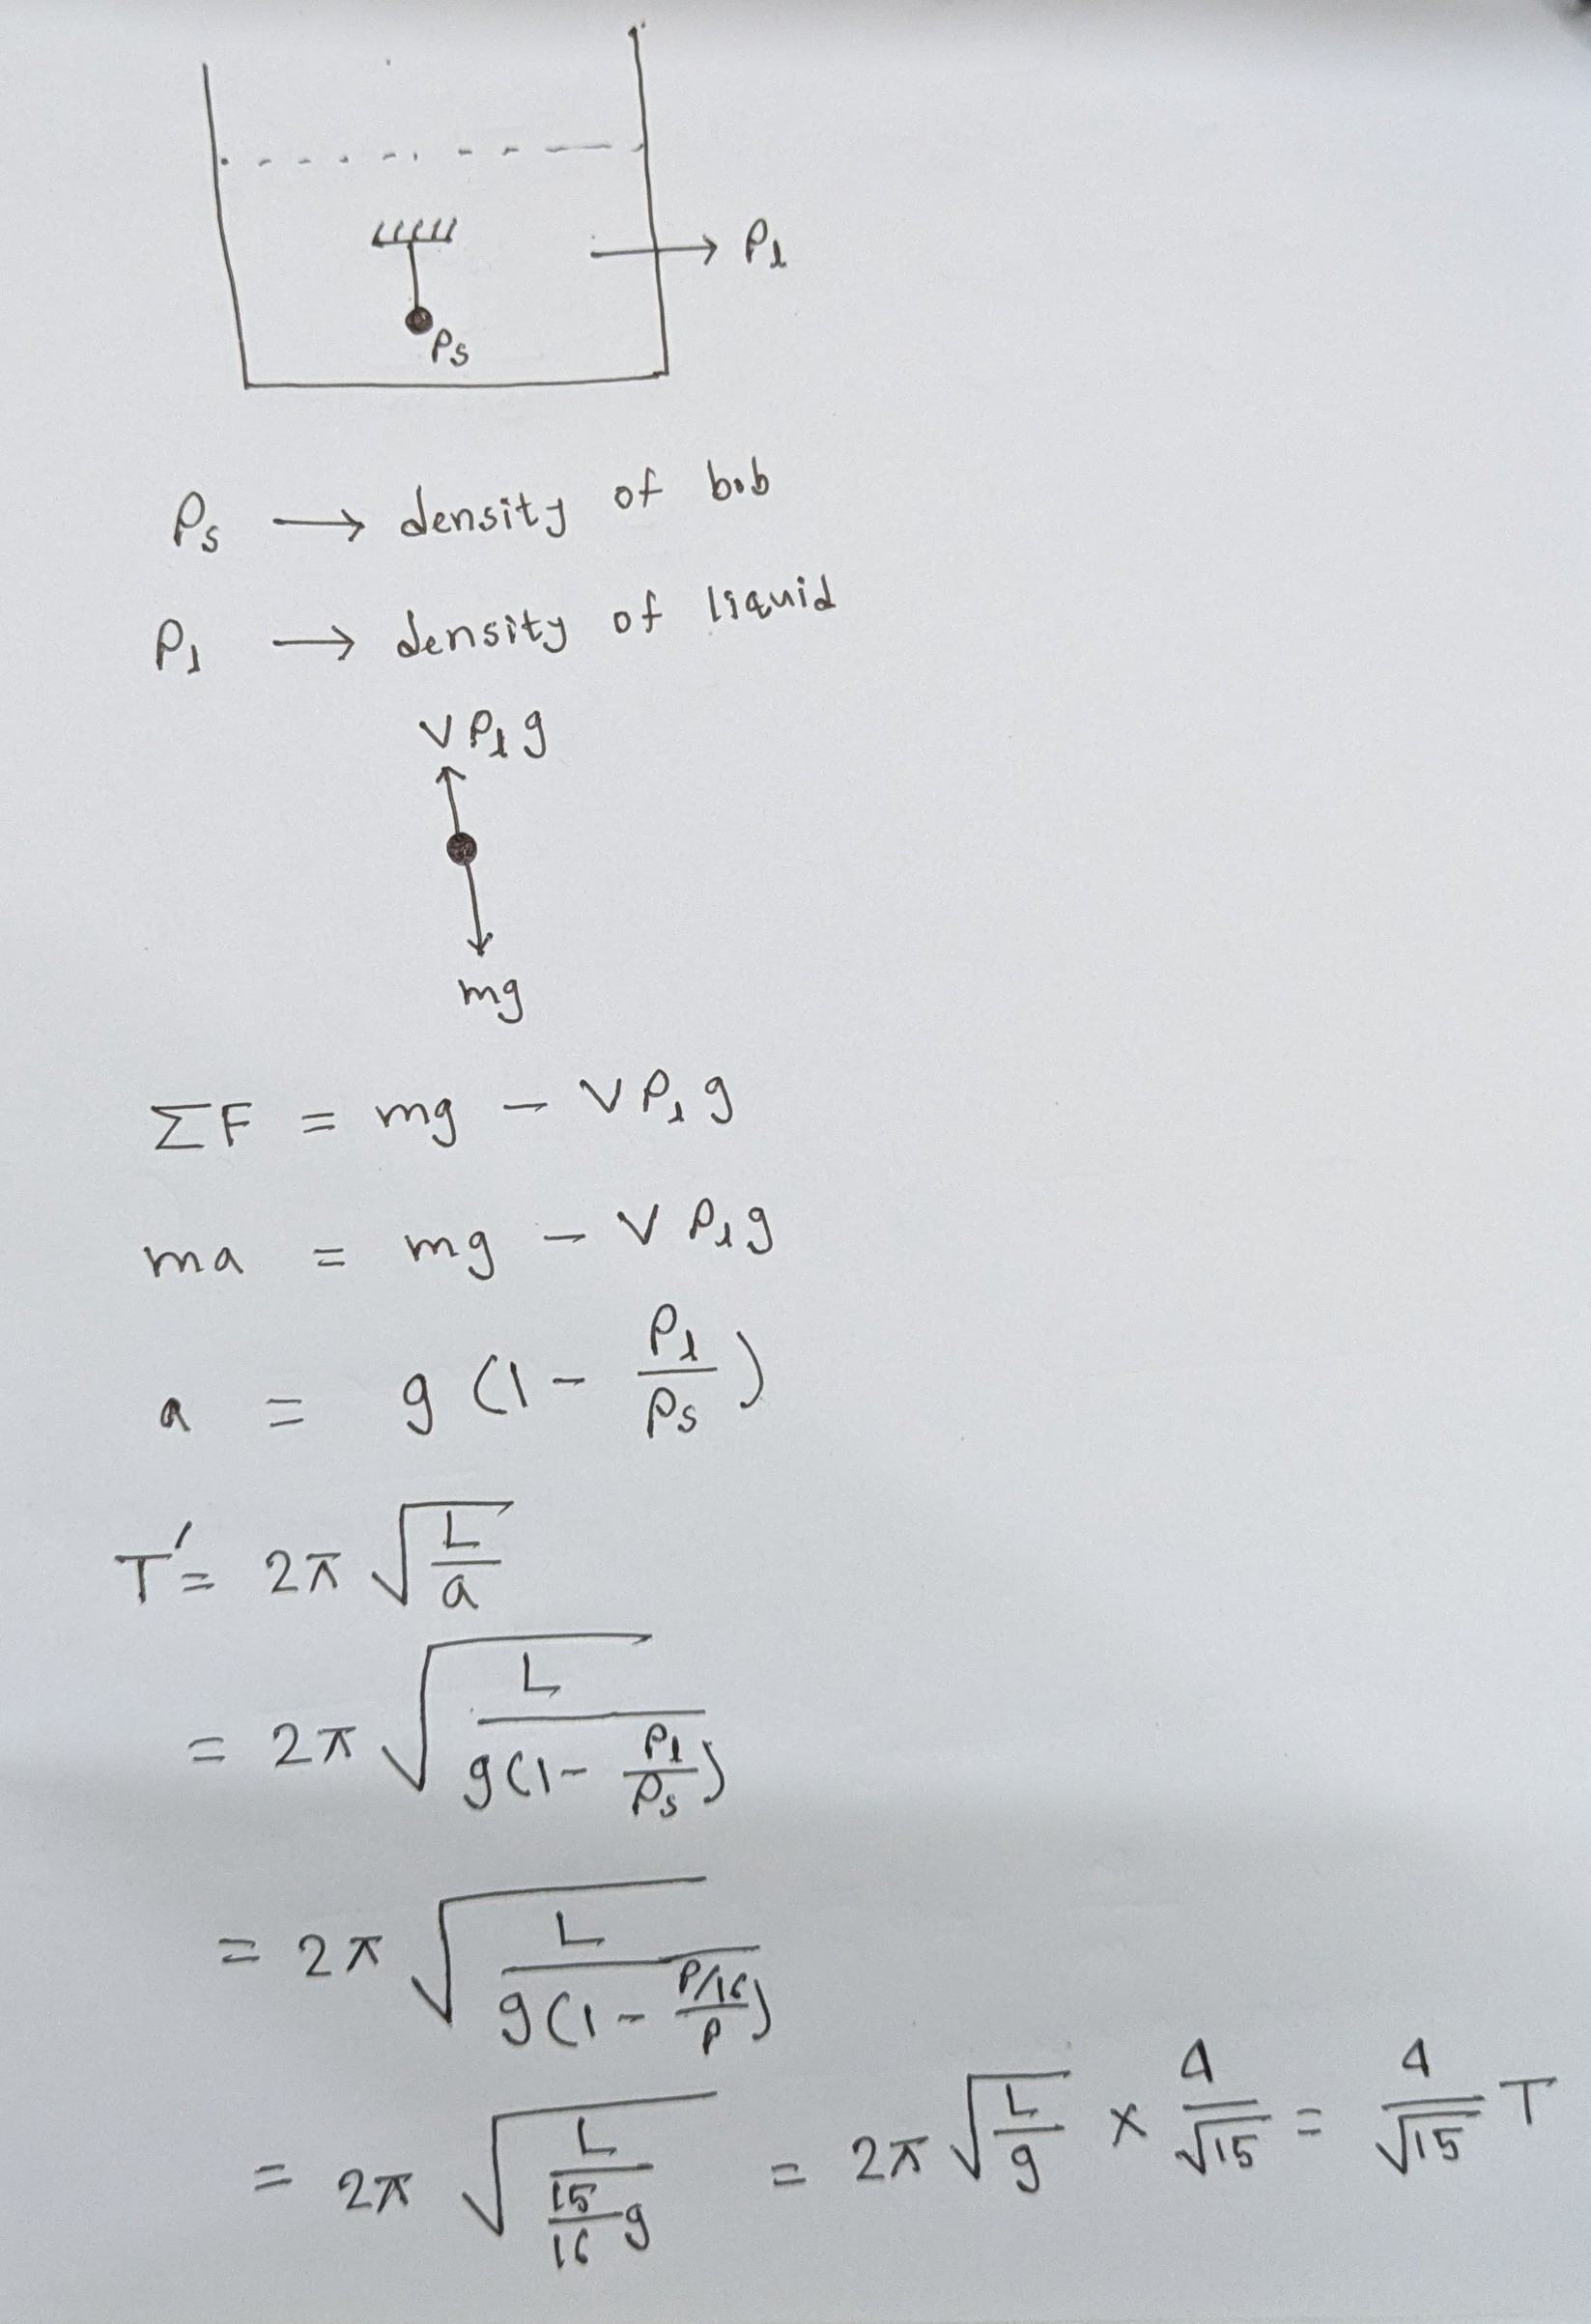 ρₗ
ρₛ
ρₛ → density of bob
ρₗ → density of liquid
vρₗg
mg
ΣF = mg - vρₗg
ma = mg - vρₗg
a = g(1 - ρₗ/ρₛ)
T' = 2π√(L/a)
= 2π√(L/(g(1 - ρₗ/ρₛ)))
= 2π√(L/(g(1 - (ρ/16)/ρ)))
= 2π√(L/((15/16)g)) = 2π√(L/g) × 4/√15 = 4/√15 T